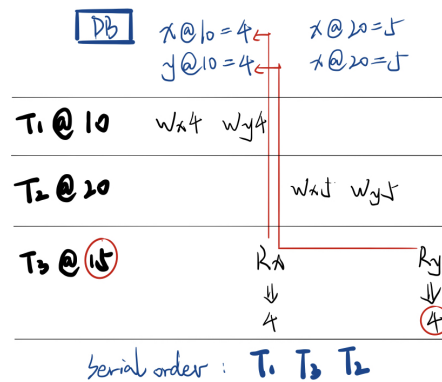 DB x@10=4 x@20=5
y@10=4 x@20=5
T1 @ 10 Wx4 Wy4
T2 @ 20 Wx5 Wy5
T3 @ 15 Rx Ry
4 4
Serial order : T1 T3 T2